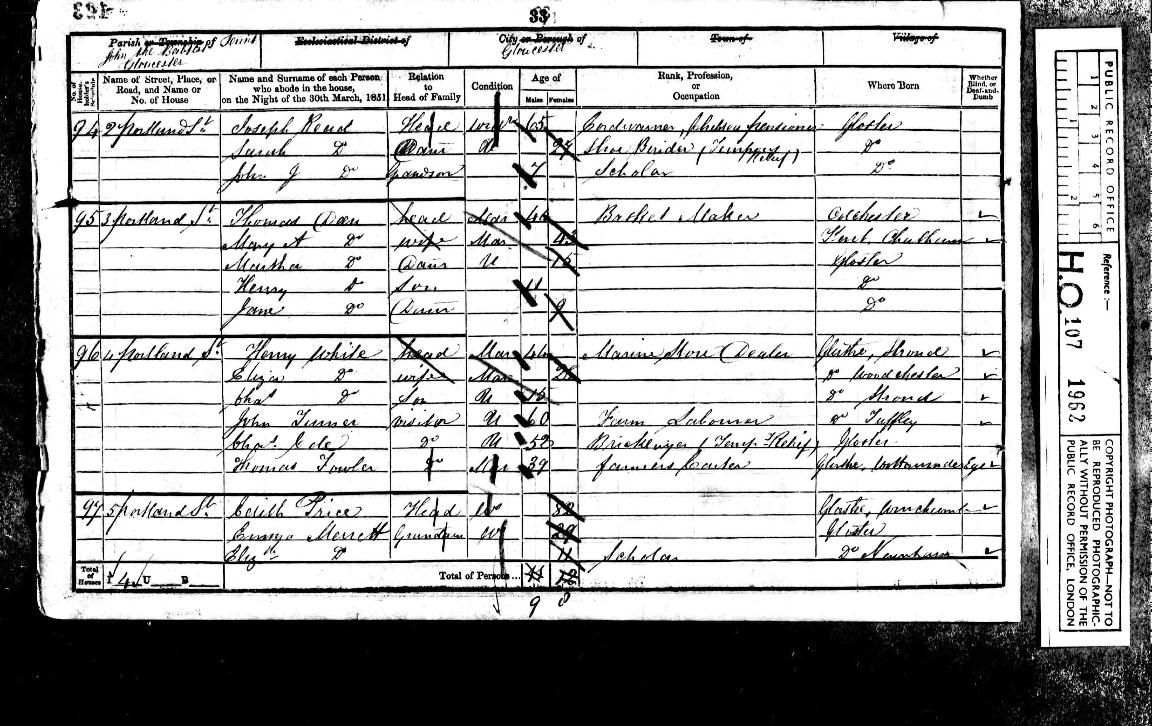 33
Parish or Township of
John the Baptist
Gloucester
Ecclesiastical District of
City or Borough of
Gloucester
Town of
Village of
No. of House-holder's Schedule
Name of Street, Place, or Road, and Name or No. of House
Name and Surname of each Person who abode in the house, on the Night of the 30th March, 1851
Relation to Head of Family
Condition
Age of
Males Females
Rank, Profession, or Occupation
Where Born
Whether Blind, or Deaf-and-Dumb
94 2 Portland St Joseph Read Head Widr 65 Cordwainer, Chelsea Pensioner Gloster
Sarah Do Daur U 27 Shoe Binder (Tempory Relief) Do
John G Do Grandson 7 Scholar Do
95 3 Portland St Thomas head Mar 46 Basket Maker Colchester
Mary A Do wife Mar 43 Kent, Chatham
Martha Do Daur U 15 Gloster
Henry Do Son 11 Do
Jane Do Daur 9 Do
96 4 Portland St Henry White head Mar 44 Marine Store Dealer Glostre, Stroud
Eliza Do wife Mar 26 Do Woodchester
Chas Do Son U 16 Do Stroud
John Turner visitor U 60 Farm Labourer Do Tuffley
Chas Cole Do U 52 Bricklayer (Temp Relief) Gloster
Thomas Fowler Do Mar 39 farmers Carter Glostre, Wottonunder Ege
97 5 Portland St Edith Price Head W 82 Gloster, Winchcomb
Emma Merrett W 29 Gloster
Elizth Do 11 Scholar Do Newnham
Total of Houses I 4 U B
Total of Persons...
9 8
PUBLIC RECORD OFFICE
1 2 3 4 5 6
1 2
Reference:-
H.O. 107 1962
COPYRIGHT PHOTOGRAPH—NOT TO BE REPRODUCED PHOTOGRAPHICALLY WITHOUT PERMISSION OF THE PUBLIC RECORD OFFICE, LONDON